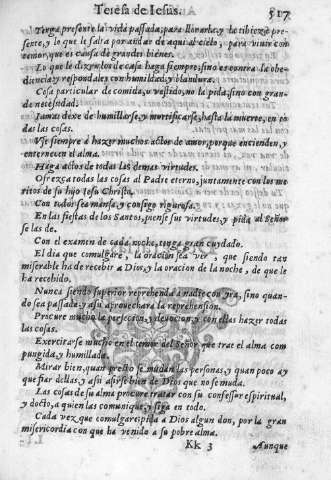 Teresa de Iesus. 517
Tenga presente la vida passada, para llorarla, y la tibieza presente, y lo que le falta por andar de aqui al cielo, para viuir con temor, que es causa de grandes bienes.
Lo que le dizen los de casa haga siempre, si no es contra la obediencia, y respondales con humildad, y blandura.
Cosa particular de comida, o vestido, no la pida, sino con grande necessidad.
Iamas dexe de humillarse, y mortificarse, hasta la muerte, en todas las cosas.
Vse siempre a hazer muchos actos de amor, porque encienden, y enternecen el alma.
Haga actos de todas las demas virtudes.
Ofrezca todas las cosas al Padre eterno, juntamente con los meritos de su hijo Iesu Christo.
Con todos sea mansa, y consigo rigurosa.
En las fiestas de los Santos, piense sus virtudes, y pida al Señor se las de.
Con el examen de cada noche, tenga gran cuydado.
El dia que comulgare, la oracion sea ver, que siendo tan miserable ha de recebir a Dios, y la oracion de la noche, de que le ha recebido.
Nunca siendo superior reprehenda a nadie con yra, sino quando sea passada, y assi aprouechara la reprehension.
Procure mucho la perfeccion, y deuocion, y con ellas hazer todas las cosas.
Exercitarse mucho en el temor del Señor que trae el alma compungida, y humillada.
Mirar bien, quan presto se mudan las personas, y quan poco ay que fiar dellas, y assi asirse bien de Dios que no se muda.
Las cosas de su alma procure tratar con su confessor espiritual, y docto, a quien las comunique, y siga en todo.
Cada vez que comulgare pida a Dios algun don, por la gran misericordia con que ha venido a su pobre alma.
Kk 3 Aunque